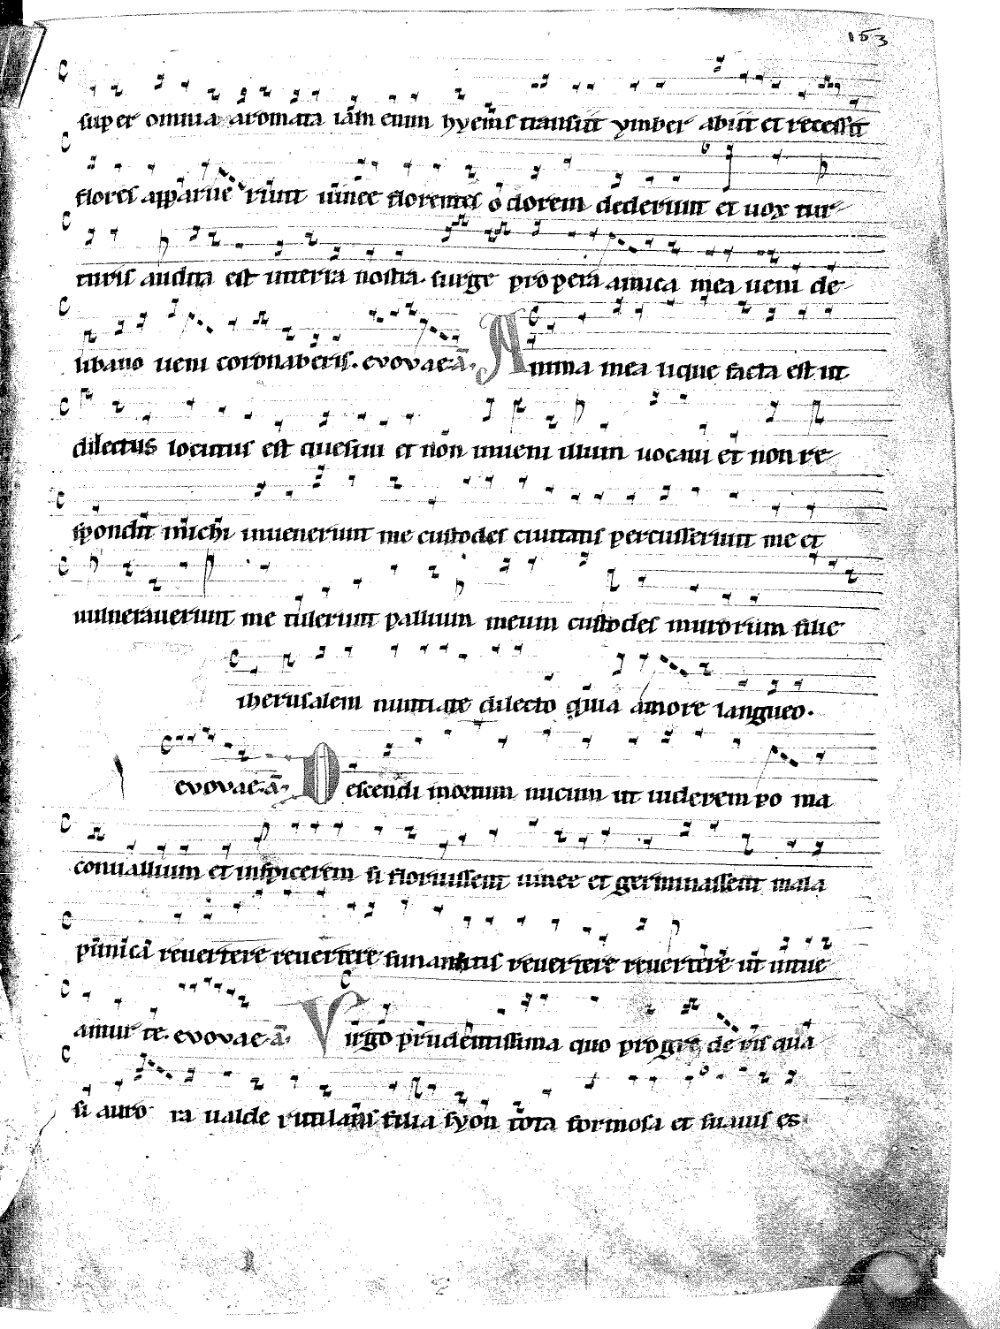 153
super omnia aromata iam enim hyems transiit ymber abiit et recessit
flores apparue runt uinee florentes o dorem dederunt et uox tur
turis audita est interra nostra. surge propera amica mea ueni de
libano ueni coronaberis. evovae. a. Anima mea lique facta est ut
dilectus locutus est quesiui et non inueni illum uocaui et non re
spondit michi inuenerunt me custodes ciuitatis percusserunt me et
uulnerauerunt me tulerunt pallium meum custodes murorum filie
iherusalem nuntiate dilecto quia amore langueo.
evovae. a. Descendi inortum nucum ut uiderem po ma
conuallium et inspicerem si floruissent uinee et germinassent mala
punica reuertere reuertere sunamitis reuertere reuertere ut intue
amur te. evovae. a. Virgo prudentissima quo progre de ris qua
si auro ra ualde rutilans filia syon tota formosa et suauis es